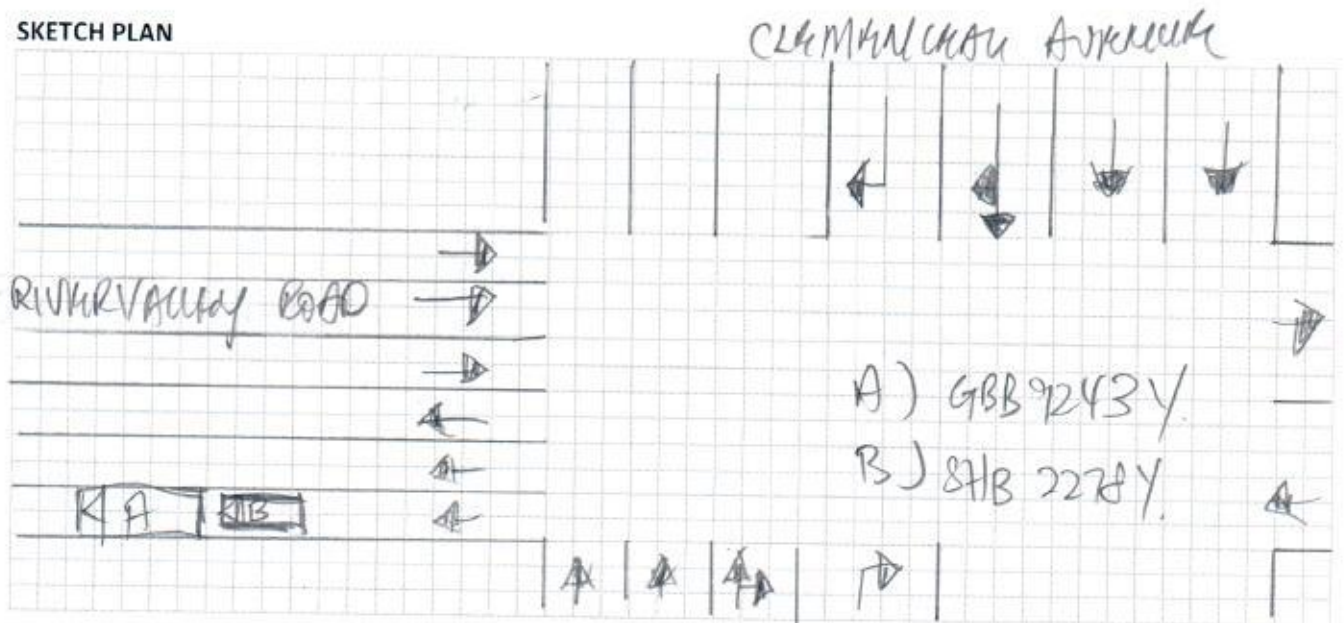 SKETCH PLAN
CLEMENCEAU AVENUE
RIVERVALLEY ROAD
A) GBB 9243Y.
B) SHB 2278Y.
A B